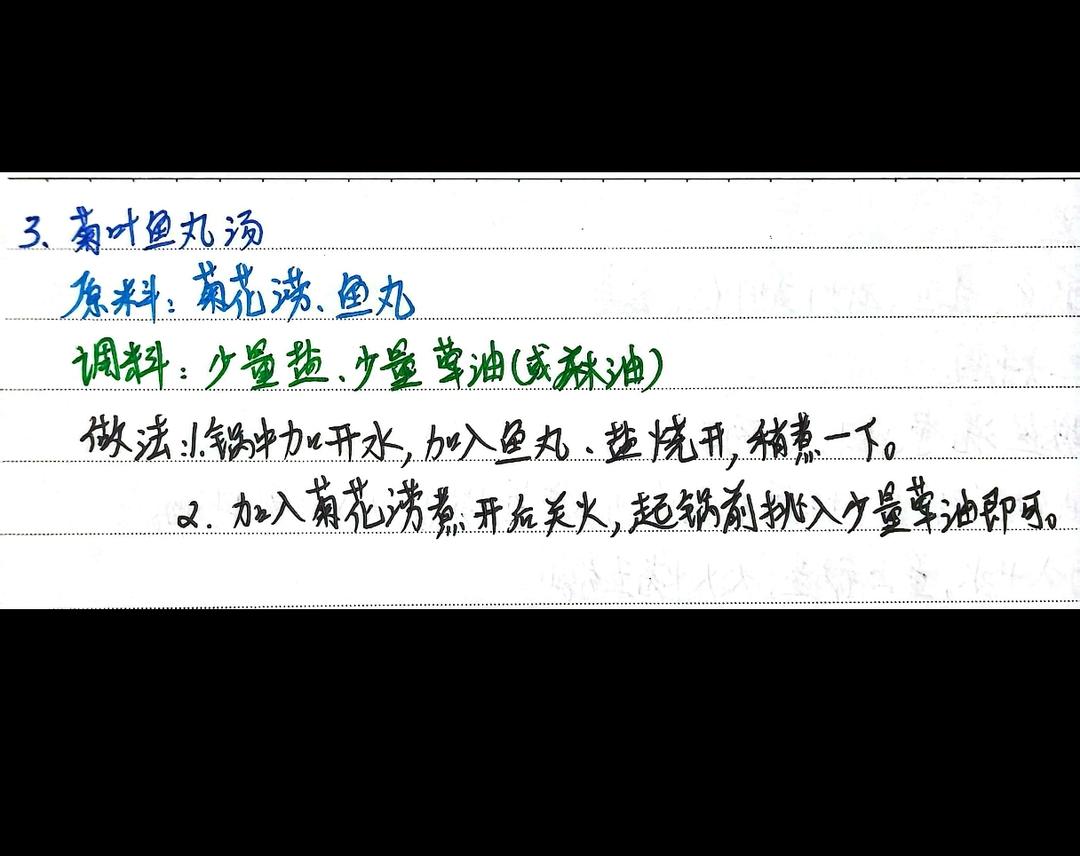 3、菊叶鱼丸汤
原料：菊花涝、鱼丸
调料：少量盐、少量荤油(或麻油)
做法：1.锅中加开水,加入鱼丸、盐烧开,稍煮一下。
2.加入菊花涝煮开后关火,起锅前挑入少量荤油即可。